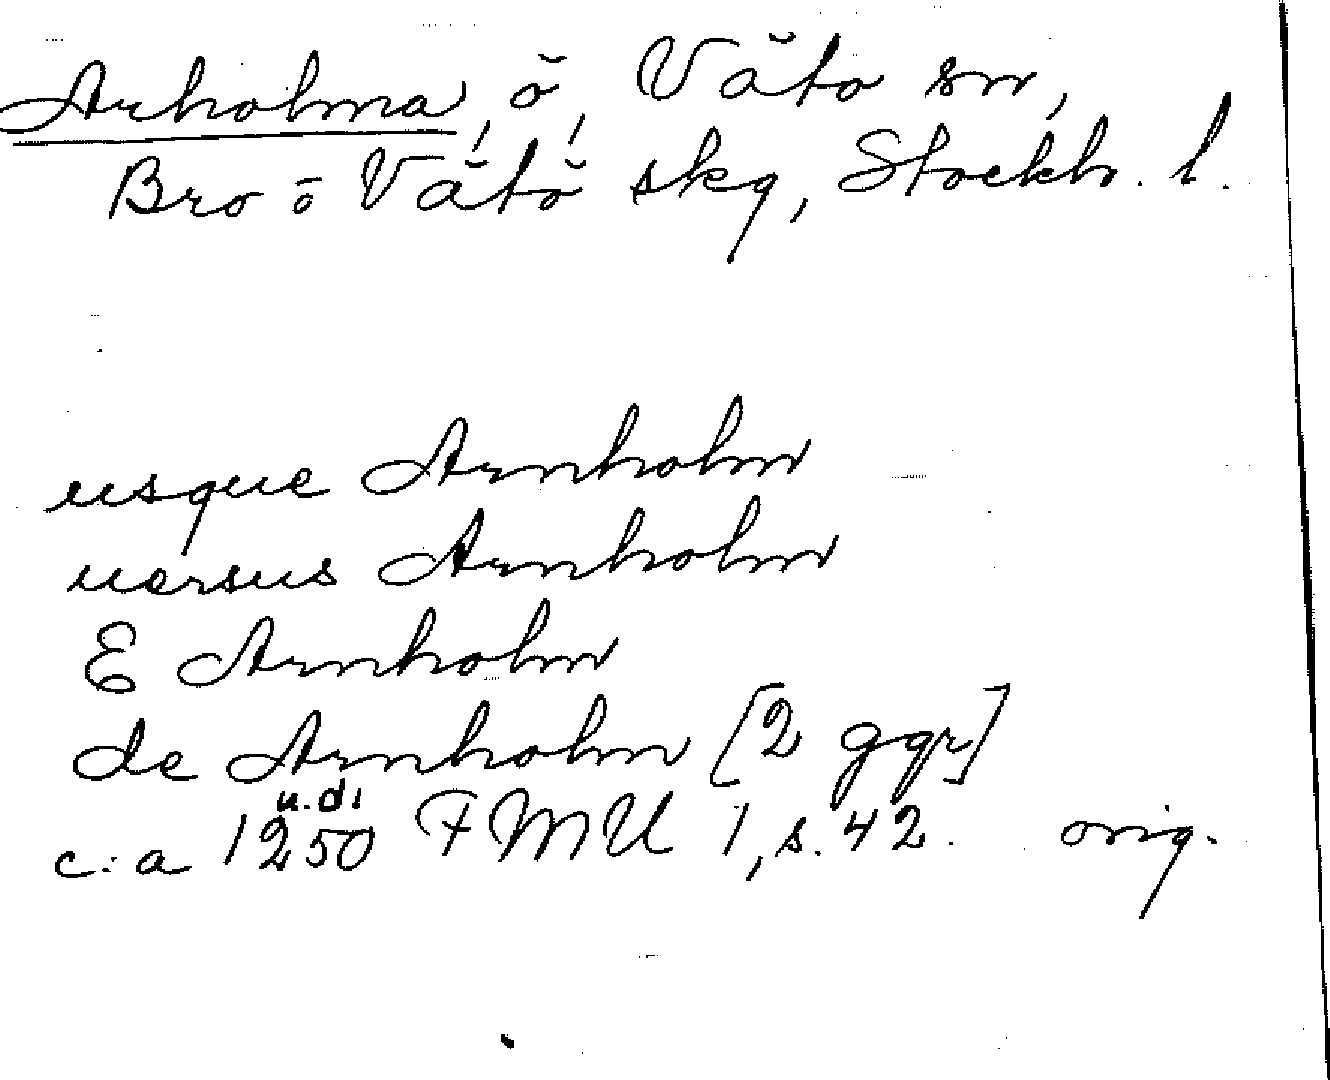 Arholma, ö, Vätö sn,
Bro o Vätö skg, Stockh. l.
usque Arnholm
uersus Arnholm
E Arnholm
de Arnholm [2 ggr]
u.d.
c:a 1250 FMU 1, s. 42. orig.